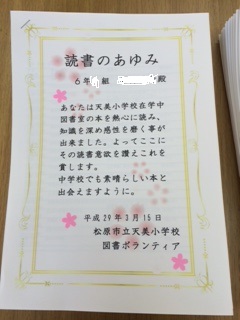 読書のあゆみ
6年 組 殿
あなたは天美小学校在学中
図書室の本を熱心に読み、
知識を深め感性を磨く事が
出来ました。よってここに
その読書意欲を讃えこれを
賞します。
中学校でも素晴らしい本と
出会えますように。
平成29年3月15日
松原市立天美小学校
図書ボランティア